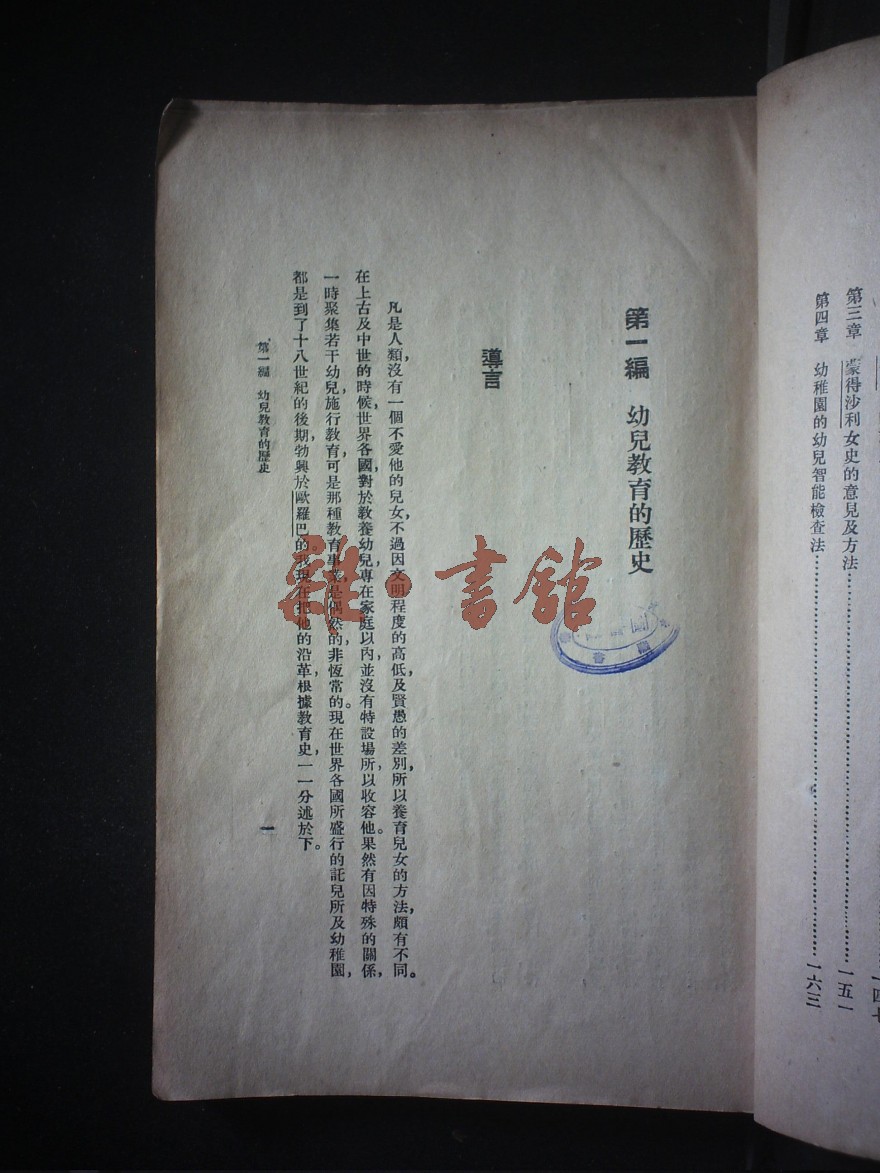 第三章　蒙得沙利女史的意見及方法……一五一
第四章　幼稚園的幼兒智能檢查法……一六三
第一編　幼兒教育的歷史
導言
凡是人類，沒有一個不愛他的兒女，不過因文明程度的高低，及賢愚的差別，所以養育兒女的方法，頗有不同。
在上古及中世的時候，世界各國，對於教養幼兒，專在家庭以內，並沒有特設場所，以收容他。果然有因特殊的關係，
一時聚集若干幼兒，施行教育，可是那種教育事業，是偶然的，非恆常的。現在世界各國所盛行的託兒所及幼稚園，
都是到了十八世紀的後期，勃興於歐羅巴的。我現在把他的沿革，根據教育史，一一分述於下。
第一編　幼兒教育的歷史
一
雜·書館